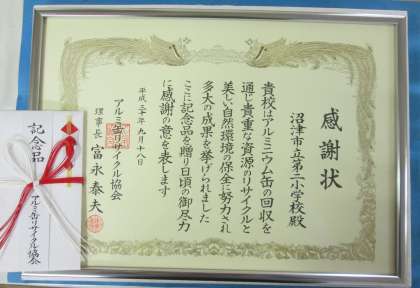 感謝状
沼津市立第二小学校殿
貴校はアルミニウム缶の回収を
通じ貴重な資源のリサイクルと
美しい自然環境の保全に努力され
多大の成果を挙げられました
ここに記念品を贈り日頃の御尽力
に感謝の意を表します
平成二十年九月十八日
アルミ缶リサイクル協会
理事長 富永泰夫
記念品
アルミ缶リサイクル協会